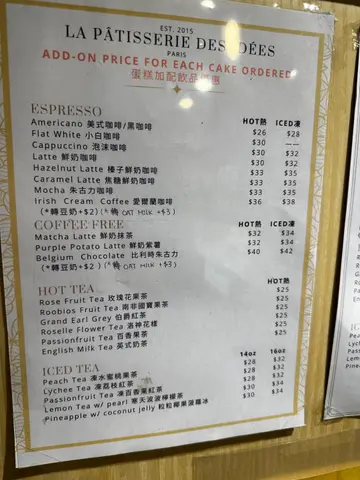 EST. 2015
LA PÂTISSERIE DES IDÉES
PARIS
ADD-ON PRICE FOR EACH CAKE ORDERED
蛋糕加配飲品
ESPRESSO HOT熱 ICED凍
Americano 美式咖啡/黑咖啡 $26 $28
Flat White 小白咖啡 $30 ——
Cappuccino 泡沫咖啡 $30 $32
Latte 鮮奶咖啡 $30 $32
Hazelnut Latte 榛子鮮奶咖啡 $33 $35
Caramel Latte 焦糖鮮奶咖啡 $33 $35
Mocha 朱古力咖啡 $33 $35
Irish Cream Coffee 愛爾蘭咖啡 $36 $38
(*轉豆奶+$2) (*轉 OAT MILK +$3)
COFFEE FREE HOT熱 ICED凍
Matcha Latte 鮮奶抹茶 $32 $34
Purple Potato Latte 鮮奶紫薯 $32 $34
Belgium Chocolate 比利時朱古力 $40 $42
(*轉豆奶+$2) (*轉 OAT MILK +$3)
HOT TEA HOT熱
Rose Fruit Tea 玫瑰花果茶 $25
Rooibios Fruit Tea 南非國寶果茶 $25
Grand Earl Grey 伯爵紅茶 $25
Roselle Flower Tea 洛神花茶 $25
Passionfruit Tea 百香果茶 $25
English Milk Tea 英式奶茶 $25
ICED TEA 14oz 16oz
Peach Tea 凍水蜜桃果茶 $28 $32
Lychee Tea 凍荔枝紅茶 $28 $32
Passionfruit Tea 凍百香果紅茶 $28 $32
Lemon Tea w/ pearl 寒天波波檸檬茶 $30 $34
Pineapple w/ coconut jelly 粒粒椰果菠蘿冰 $30 $34